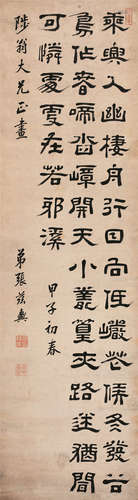 乘興入幽棲舟行日向低巖花候冬發谷
鳥作春啼沓嶂開天小叢篁夾路迷猶聞
可憐處更在若邪溪
甲子初春
陟翁大兄正
弟張茲